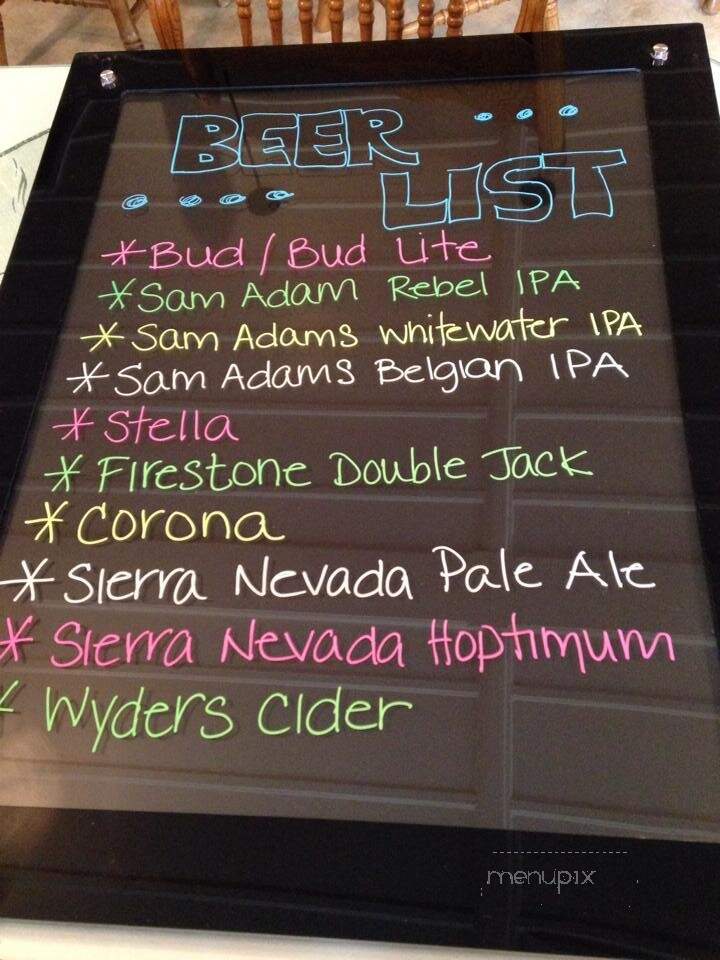 BEER
LIST
*Bud / Bud Lite
*Sam Adam Rebel IPA
*Sam Adams Whitewater IPA
*Sam Adams Belgian IPA
*Stella
*Firestone Double Jack
*Corona
*Sierra Nevada Pale Ale
*Sierra Nevada Hoptimum
*Wyders Cider
menupix